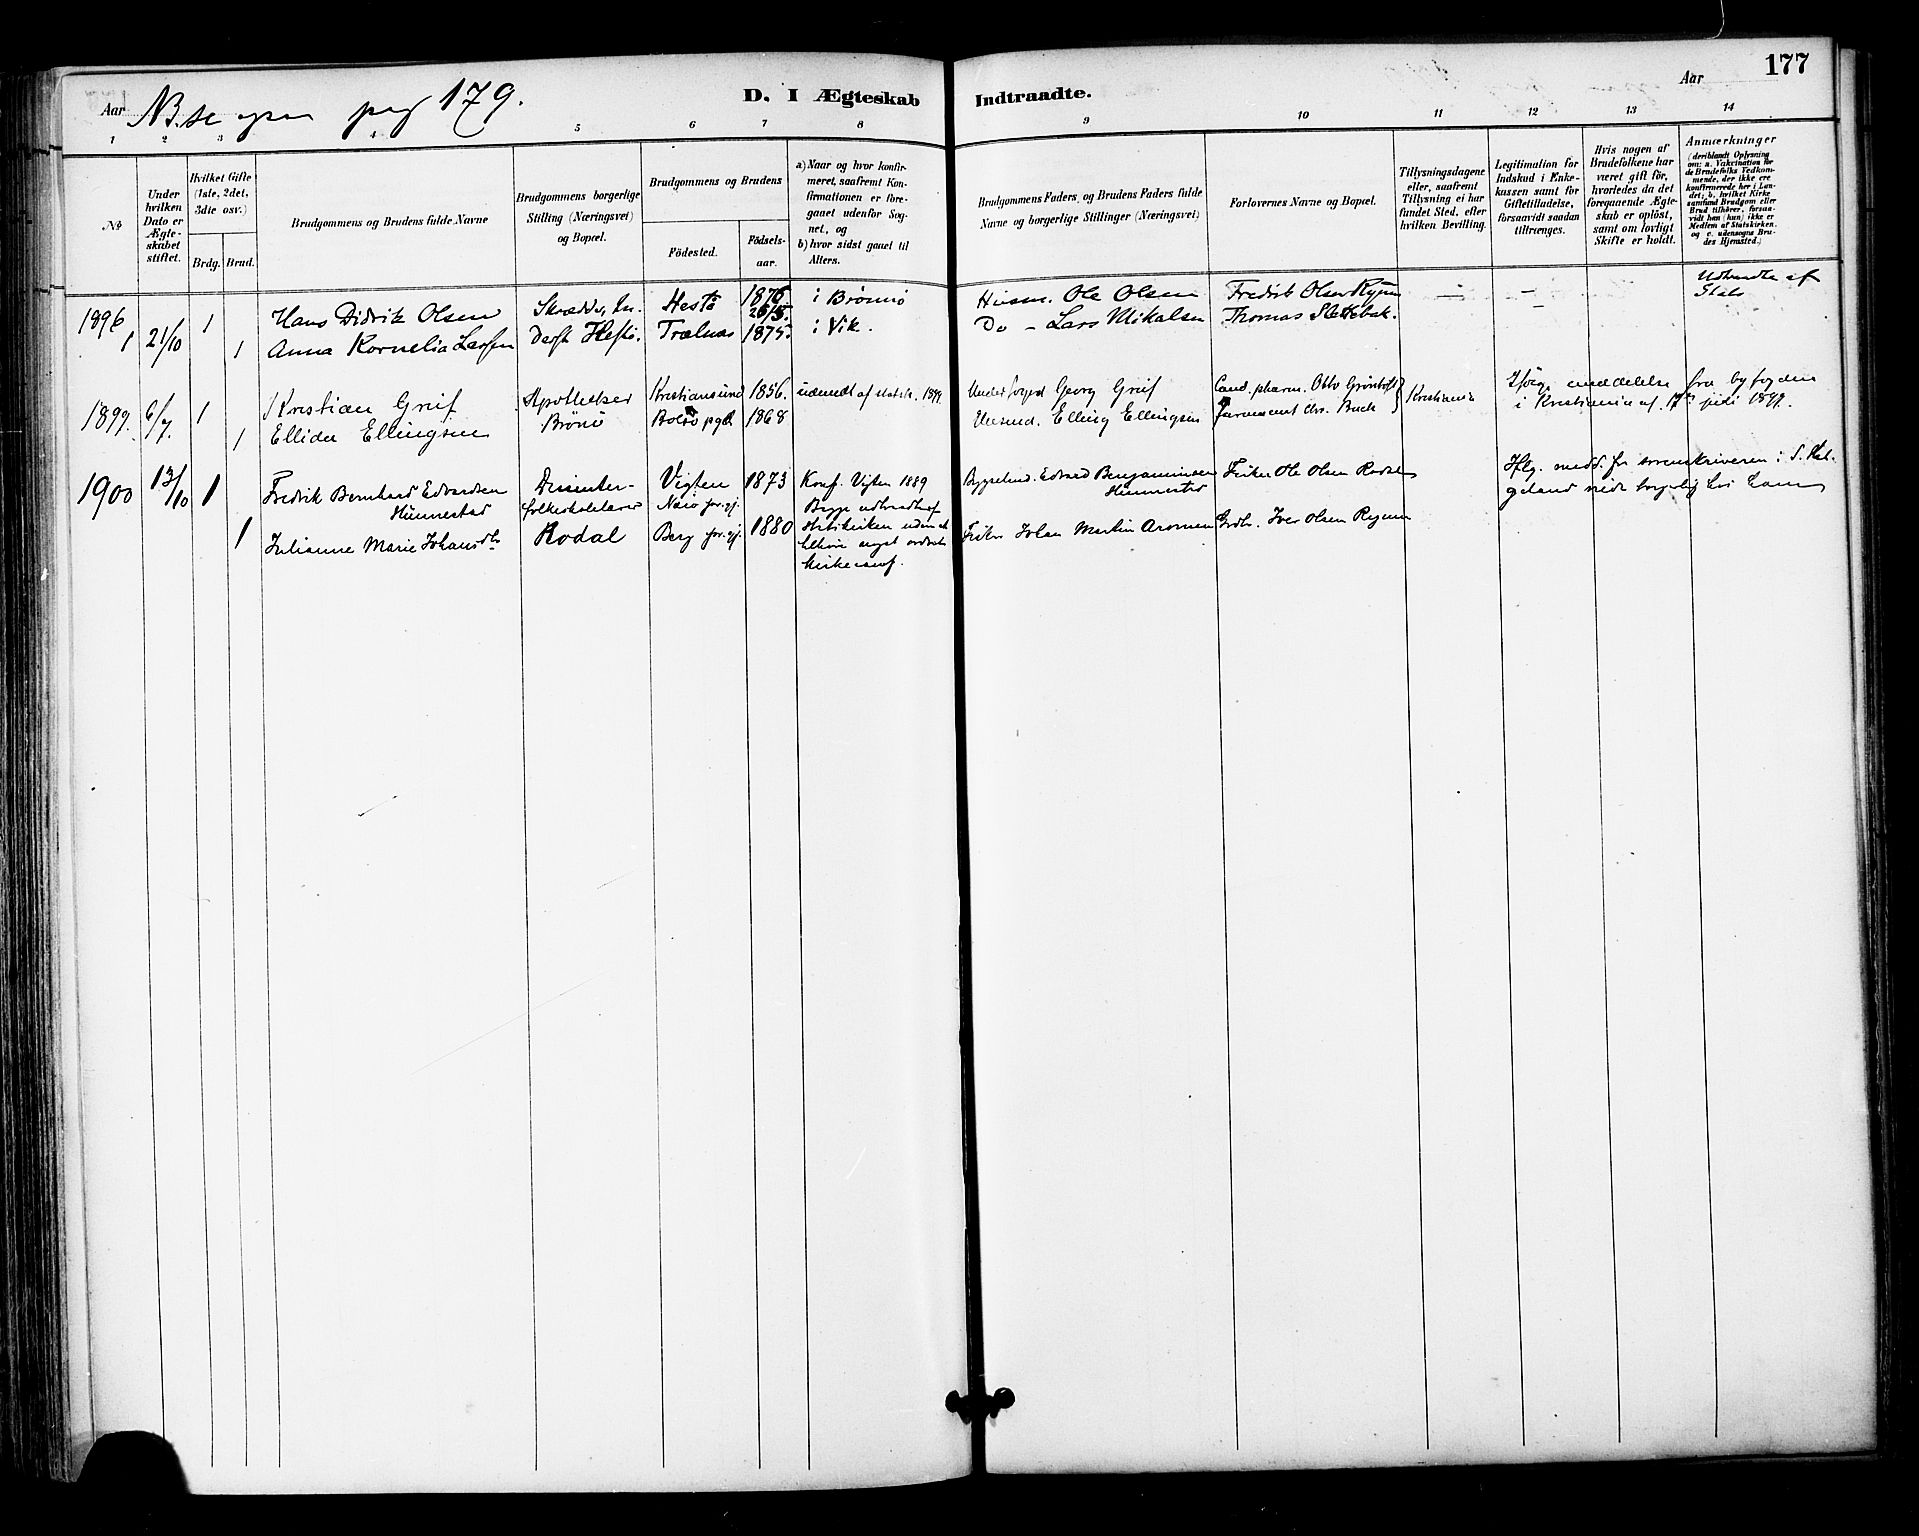 177
Aar
NB. se pag 179.
D. I Ægteskab
Indtraadte.
Aar
1 2 3 4 5 6 7 8 9 10 11 12 13 14
№
Under hvilken Dato er Ægteskabet stiftet.
Hvilket Gifte (1ste, 2det, 3die osv.)
Brdg. Brud.
Brudgommens og Brudens fulde Navne
Brudgommens borgerlige Stilling (Næringsvei) og Bopæl.
Brudgommens og Brudens
Födested.
Födselsaar.
a) Naar og hvor konfirmeret, saafremt Konfirmationen er foregaaet udenfor Sognet, og
b) hvor sidst gaaet til Alters.
Brudgommens Faders, og Brudens Faders fulde Navne og borgerlige Stillinger (Næringsvei)
Forlovernes Navne og Bopæl.
Tillysningsdagene eller, saafremt Tillysning ei har fundet Sted, efter hvilken Bevilling.
Legitimation for Indskud i Enkekassen samt for Giftetilladelse, forsaavidt saadan tiltrænges.
Hvis nogen af Brudefolkene har været gift för, hvorledes da det foregaaende Ægteskab er oplöst, samt om lovligt Skifte er holdt.
Anmærkninger (deriblandt Oplysning om: a. Vakcination för de Brudefolks Vedkommende, der ikke ere konfirmerede her i Landet; b. hvilket Kirkesamfund Brudgom eller Brud tilhører, forsaavidt han (hun) ikke er Medlem af Statskirken; og c. udensogns Brudes Hjemsted.)
1896 1 21/10 1 Hans Didrik Olsen Hestø 1876 i Brønnø Husm. Ole Olsen Fredrik Olsen Udtraadte af Stats
26/5.
1 Anna Kornelia Larsen Hestø. Trælnes 1875. i Vik. Do – Lars Mikalsen Thomas Slettebak.
1899. 6/7. 1 Kristian Greif Apotheker Kristiansund 1856. udmeldt af statsk. 1899. Georg Greif Cand. pharm. Otto Grøntoft Kristiania Ifølge meddelelse fra byfogden
1 Ellida Ellingsen Brønø Bolsø pgd 1868 Elling Ellingsen farmaceut Chr. Buch i Kristiania af 17de juli 1899.
1900 13/10 1 Fredrik Bernhard Edvardsen Dissenter- Vigten 1873 Konf. Vigten 1889 Edvard Benjaminsen Ole Olsen Rodal Iflg. medd. fra sorenskriveren i S. Hel-
Hunnestad folkeskolelærer Nærø Begge udtraadt af Hunnestad geland viede borgerlig hos ham
1 Julianne Marie Johansdtr Rodal Berg 1880 Statskirken uden at Johan Martin Aronsen Grdbr. Iver Olsen
tilhøre noget ordnet
kirkesamf.